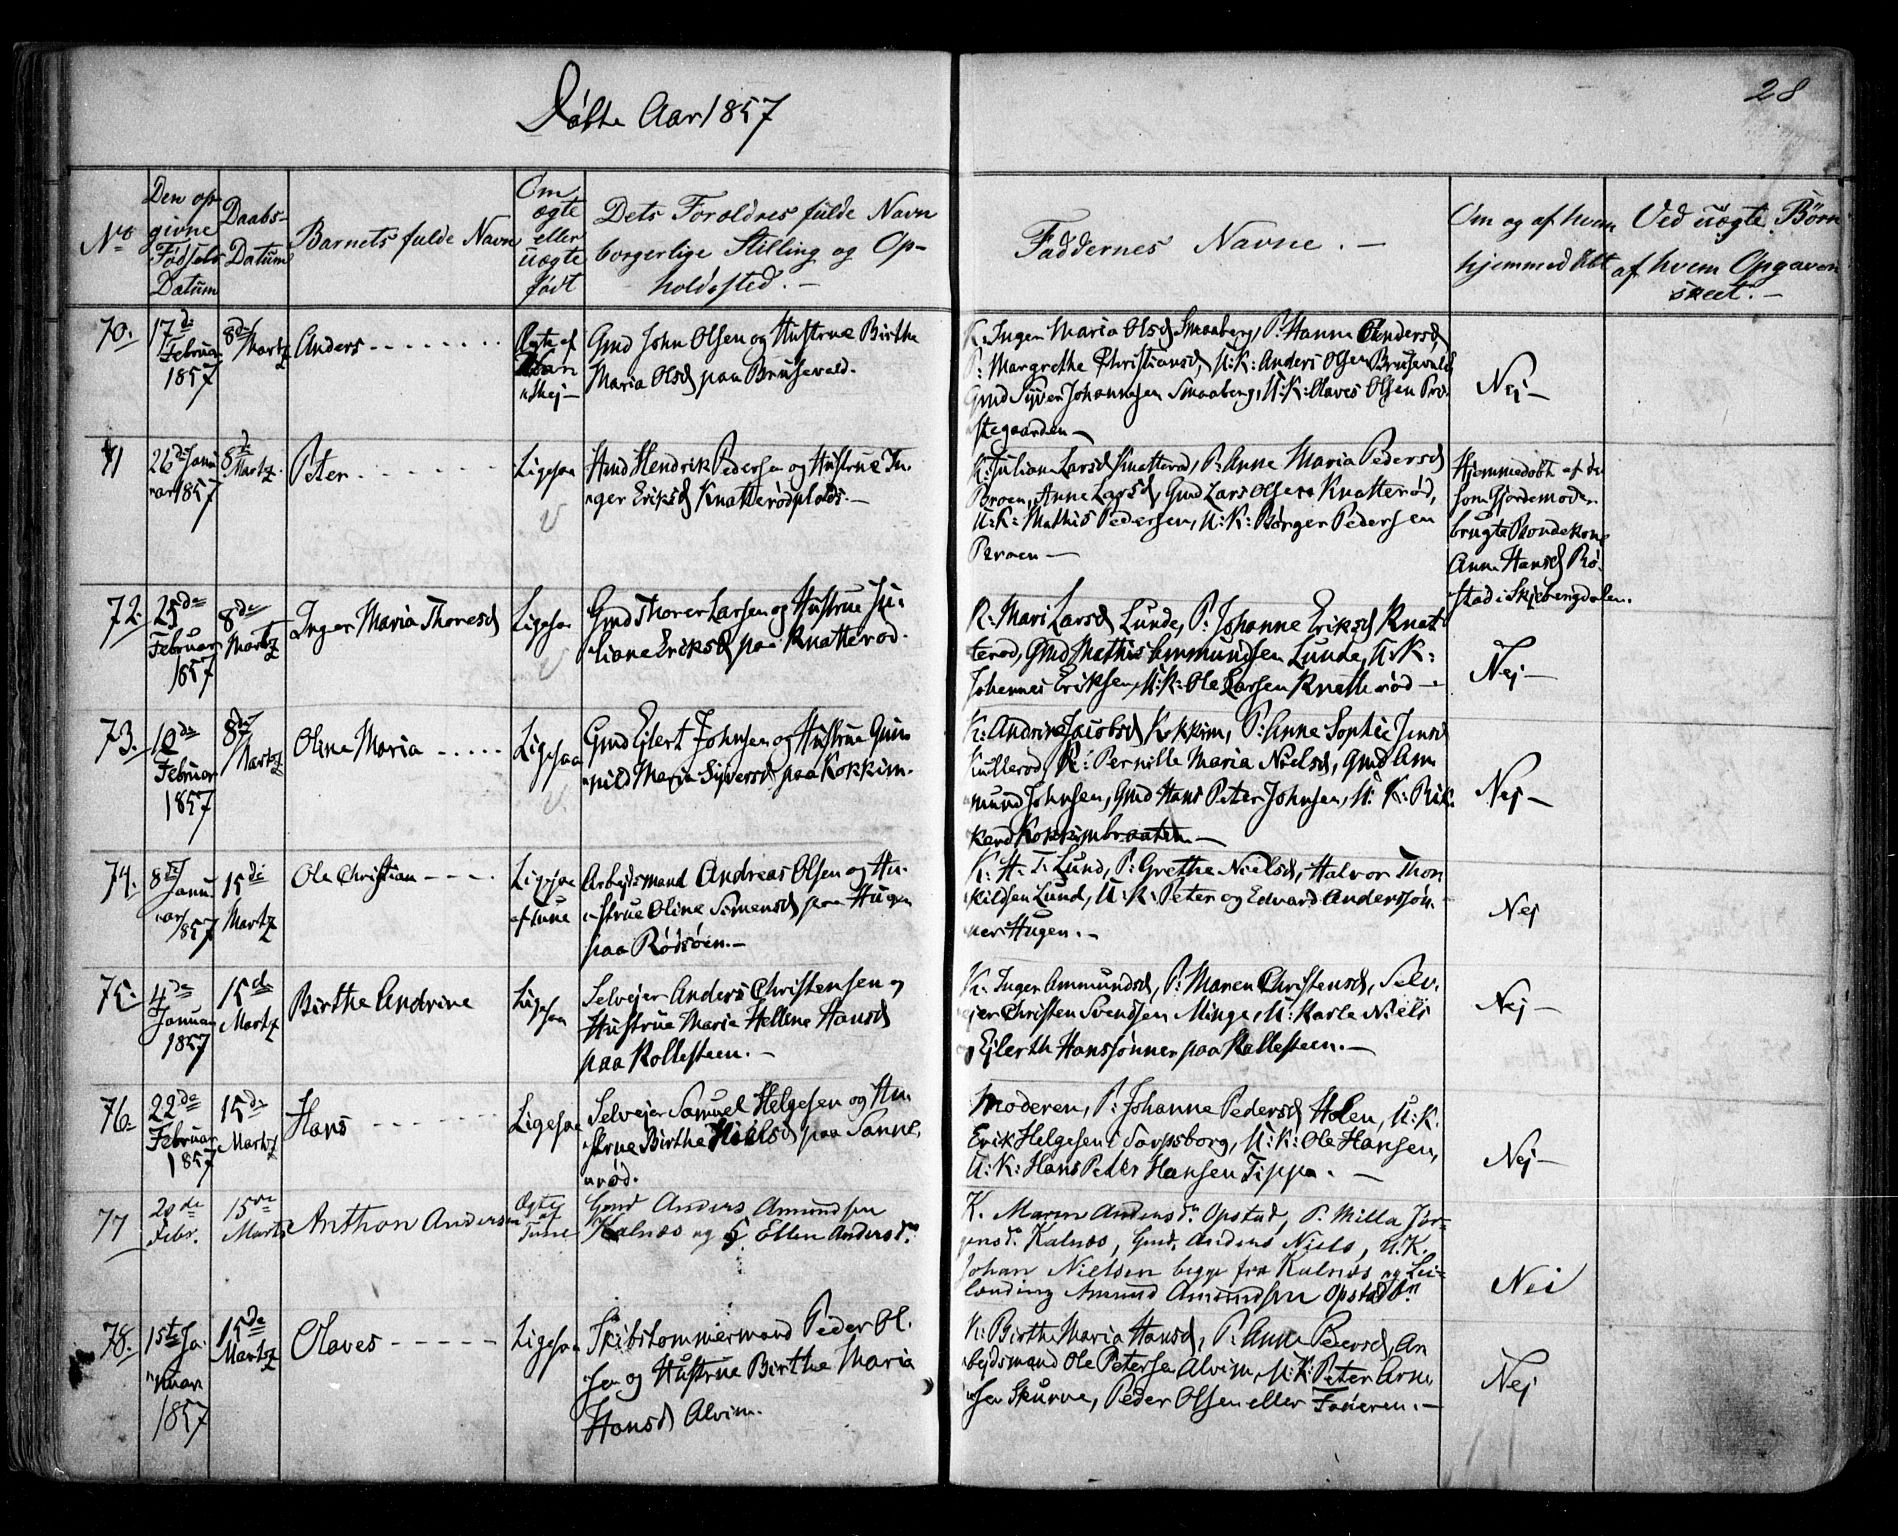 Døbte Aar 1857
28
No
Den op
givne
Fødsels
Datum
Daabs-
Datum
Barnets fulde Navn
Om
ægte
eller
uægte
født
Dets Forældres fulde Navn
borgerlige Stilling og Op-
holdssted. —
Faddernes Navne. —
Om og af hvem
hjemmedøbt
Ved uægte Børn
af hvem Opgaven
skeet. —
70.
17de
Februar
1857
8de
Martz
Anders
Ægte af
Gmd John Olsen og Hustrue Birthe
Maria Olsd paa Brusevald.
K: Ingen Maria Olsd Smaaberg, P: Hanna Andersd,
P: Margrethe Christiansd, U:K: Anders Olsen Brusevald,
Gmd Syver Johannesen Smaaberg, U:K: Olaves Olsen Præ-
stegaarden —
Nej —
71
26de Janu
var 1857
8de
Martz.
Peter
Ligesaa
Hmd Hendrik Pedersen og Hustrue In-
ger Eriksd Knatterødplads. —
K: Juliane Larsd Knatterød, P: Anne Maria Pedersd
Broen, Anne Larsd, Gmd Lars Olsen Knatterød,
U:K: Mathis Pedersen, U:K: Børger Pedersen
Broen —
Hjemmedøbt af den
som Gjordemoder
brugte Bondekone
Anne Hansd Rø-
stad i Skjebergdalen.
72.
25de
Februar
1857
8de
Martz
Inger Maria Thoresd
Ligesaa
Gmd Thorer Larsen og Hustrue Ju-
liane Eriksd paa Knatterød.
K: Mari Larsd Lunde, P: Johanne Eriksd Knat-
terød, Gmd Mathis Ammundsen Lunde, U:K:
Johannes Eriksen, U:K: Ole Larsen Knatterød —
Nej —
73.
10de
Februar
1857
8de
Martz
Oline Maria
Ligesaa
Gmd Ejlert Johnsen og Hustrue Gun-
nild Maria Syversd paa Kokkim.
K: Andrine Jacobsd Kokkim, P: Anne Sophie Jensd
Kullerød, K: Pernille Maria Nielsd, Gmd Am-
mund Johnsen, Gmd Hans Peter Johnsen, U:K: Rik-
kard Kokkimbraaten —
Nej —
74.
8de Janu
var 1857
15de
Martz
Ole Christian
Ligesaa
af Tune
Arbejdsmand Andreas Olsen og Hu-
strue Oline Simensd paa Hugen
paa Rødsøen. —
K: H. T. Lund, P: Grethe Nielsd, Halvor Thor-
kildsen Lund, U:K: Peter og Edvard Anderssøn-
ner Hugen. —
Nej
75.
4de
Januar
1857
15de
Martz
Birthe Andrine
Ligesaa
Selvejer Anders Christensen og
Hustrue Maria Hellene Hansd
paa Rollesteen. —
K: Inger Ammundsd, P: Maren Christensd, Selv-
ejer Christen Svendsen Minge, U:Karle Niels
og Ejlerth Hanssønner paa Kallesteen. —
Nej —
76.
22de
Februar
1857
15de
Martz
Hans
Ligesaa
Selvejer Samuel Helgesen og Hu-
strue Birthe Nielsd paa Sanne-
rød.
Moderen, P: Johanne Pedersd Holen, U:K.
Erik Helgesen i Sarpsborg, U:K: Ole Hansen,
U:K: Hans Peter Hansen Tippa. —
Nej —
77
20de
Febr.
15de
Marts
Anthon Andersen
Ægte
Tune
Gmd Anders Amundsen
Kalnæs og Ellen Andersd.
K. Maren Andersd. Opstad, P. Milla Jør-
gensd. Kalnæs, Gmd. Anders Niels, U.K.
Johan Nielsen begge fra Kalnæs og Lei-
lænding Amund Amundsen Opstad
Nei
78.
1ste Ja-
nuar
1857
15de
Martz
Olaves
Ligesaa
Skibstømmermand Peder Ol-
sen og Hustrue Birthe Maria
Hansd Alvim.
K: Birthe Maria Hansd, P: Anne Pedersd, Ar-
bejdsmand Ole Petersen Alvim, U:K: Peter Arne-
sen Skurve, Peder Olsen eller Faderen. —
Nej